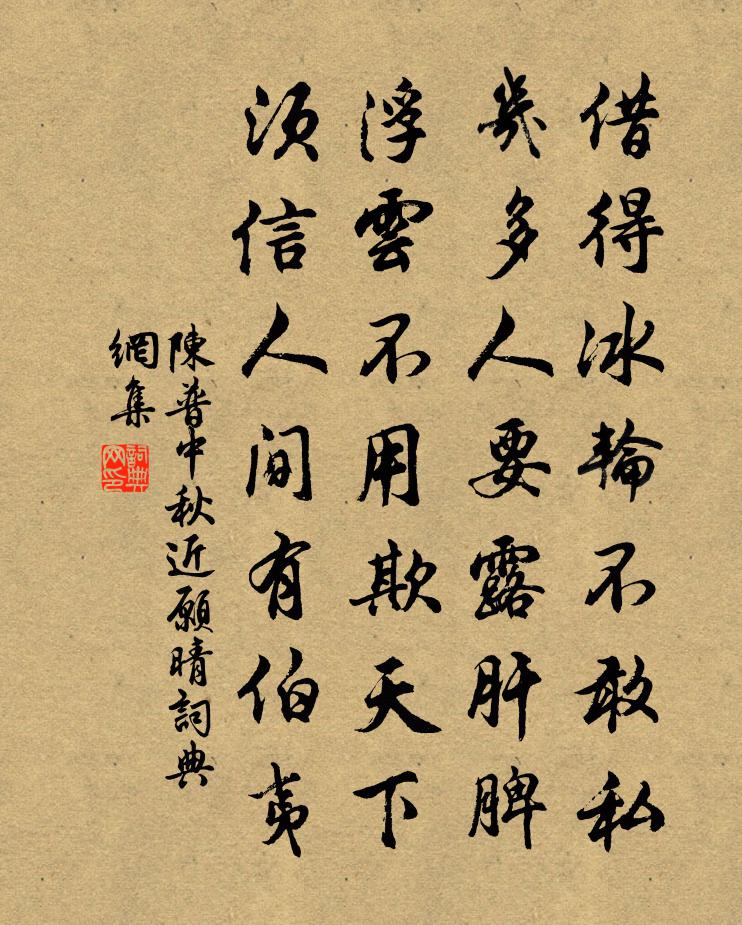 借得冰輪不敢私
幾多人要露肝脾
浮雲不用欺天下
須信人間有伯夷
陳普中秋近願晴詞典
網集
詞典
网印